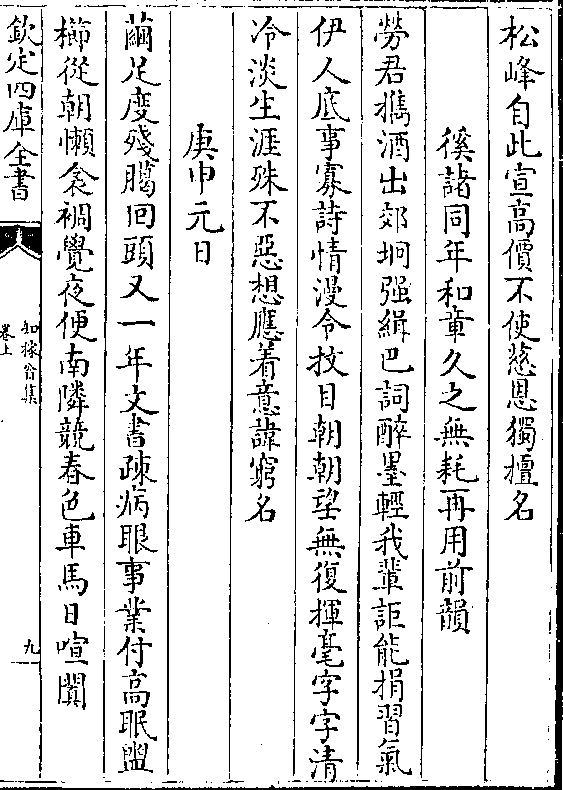 松峰自此宣高價不使慈恩獨擅名
徯諸同年和章久之無耗再用前韻
勞君攜酒出郊坰强緝巴詞醉墨輕我輩詎能捐習氣
伊人底事寡詩情漫令抆目朝朝望無復揮毫字字清
冷淡生涯殊不惡想應着意諱窮名
庚申元日
繭足度殘臈回頭又一年文書疎病眼事業付高眠盥
櫛從朝懶衾裯覺夜便南隣競春色車馬日喧闐
欽定四庫全書
知稼翁集
卷上
九